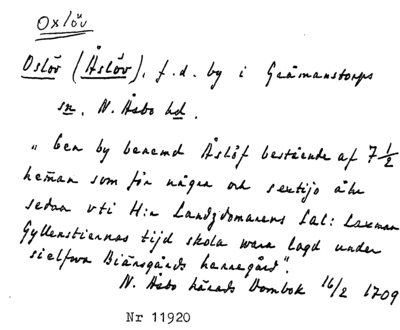 Oxlöv
Oslöv (Åslöv), f.d. by i Gråmanstorps
sn, N. Åsbo hd.
" Een by benemd Åslöf bestående af 7 1/2
heman som för några och sextijo åhr
sedan vti H:r Landzdomarens Sal: Laxman
Gyllenstiernas tijd skola wara lagd under
sielfwa Biärsgårds herregård".
N. Åsbo härads Dombok 16/2 1709
Nr 11920